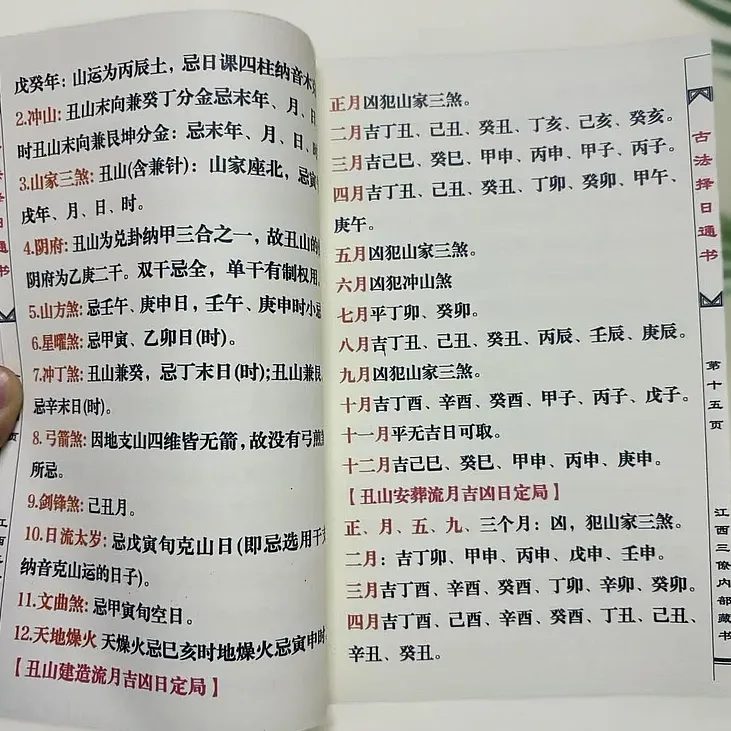 戊癸年：山运为丙辰土，忌日课四柱纳音木
2.冲山：丑山未向兼癸丁分金忌未年、月、日、
时丑山未向兼艮坤分金：忌未年、月、日、
3.山家三煞：丑山(含兼针)：山家座北，忌寅
戌年、月、日、时。
4.阴府：丑山为兑卦纳甲三合之一，故丑山的
阴府为乙庚二干。双干忌全，单干有制权用
5.山方煞：忌壬午、庚申日，壬午、庚申时小忌
6.星曜煞：忌甲寅、乙卯日(时)。
7.冲丁煞：丑山兼癸，忌丁未日(时)；丑山兼艮
忌辛未日(时)。
8.弓箭煞：因地支山四维皆无箭，故没有弓箭
所忌。
9.剑锋煞：己丑月。
10.日流太岁：忌戊寅旬克山日(即忌选用干支
纳音克山运的日子)。
11.文曲煞：忌甲寅旬空日。
12.天地燥火 天燥火忌巳亥时地燥火忌寅申时
【丑山建造流月吉凶日定局】
正月凶犯山家三煞。
二月吉丁丑、己丑、癸丑、丁亥、己亥、癸亥。
三月吉己巳、癸巳、甲申、丙申、甲子、丙子。
四月吉丁丑、己丑、癸丑、丁卯、癸卯、甲午、
庚午。
五月凶犯山家三煞。
六月凶犯冲山煞
七月平丁卯、癸卯。
八月吉丁丑、己丑、癸丑、丙辰、壬辰、庚辰。
九月凶犯山家三煞。
十月吉丁酉、辛酉、癸酉、甲子、丙子、戊子。
十一月平无吉日可取。
十二月吉己巳、癸巳、甲申、丙申、庚申。
【丑山安葬流月吉凶日定局】
正、月、五、九、三个月：凶，犯山家三煞。
二月：吉丁卯、甲申、丙申、戊申、壬申。
三月吉丁酉、辛酉、癸酉、丁卯、辛卯、癸卯。
四月吉丁酉、己酉、辛酉、癸酉、丁丑、己丑、
辛丑、癸丑。
古法择日通书
第十五页
江西三僚内部藏书